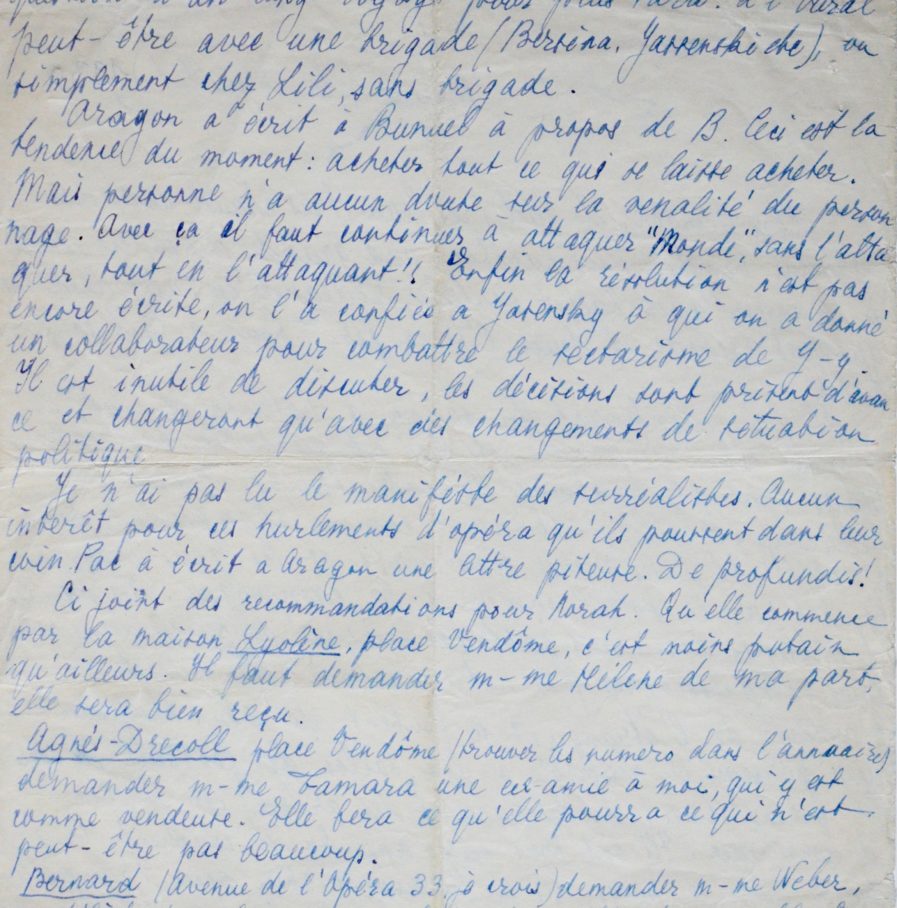 peut-être avec une brigade (Bersina, Yassenski etc), ou
simplement chez Lili, sans brigade.
Aragon a écrit à Bunuel à propos de B. Ceci est la
tendence du moment: acheter tout ce qui se laisse acheter.
Mais personne n'a aucun doute sur la venalité du person
nage. Avec ça il faut continuer à attaquer "Monde", sans l'atta
quer, tout en l'attaquant!! Enfin la résolution n'est pas
encore écrite, on l'a confiée a Yasensky à qui on a donné
un collaborateur pour combattre le sectarisme de Y-y.
Il est inutile de discuter, les décisions sont prisent d'avan
ce et changeront qu'avec des changements de situation
politique
Je n'ai pas lu le manifeste des surréalistes. Aucun
intérêt pour ces hurlements d'opéra qu'ils poussent dans leur
coin. Pac à écrit a Aragon une lettre piteuse. De profundis!
Ci joint des recommandations pour Norah. Qu'elle commence
par la maison Lyolène, place Vendôme, c'est moins putain
qu'ailleurs. Il faut demander m-me Hélène de ma part,
elle sera bien reçu.
Agnès-Drecoll place Vendôme (trouver les numero dans l'annuaire)
demander m-me Tamara une ex-amie à moi, qui y est
comme vendeuse. Elle fera ce qu'elle pourra ce qui n'est
peut-être pas beaucoup.
Bernard (Avenue de l'Opéra 33, je crois) demander m-me Weber,